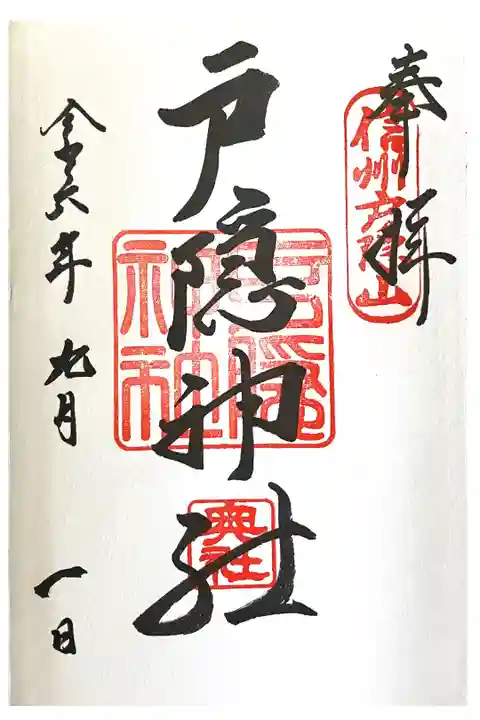 奉拝
信州戸隠山
戸隠神社
戸隠神社
奥社
令和六年九月一日